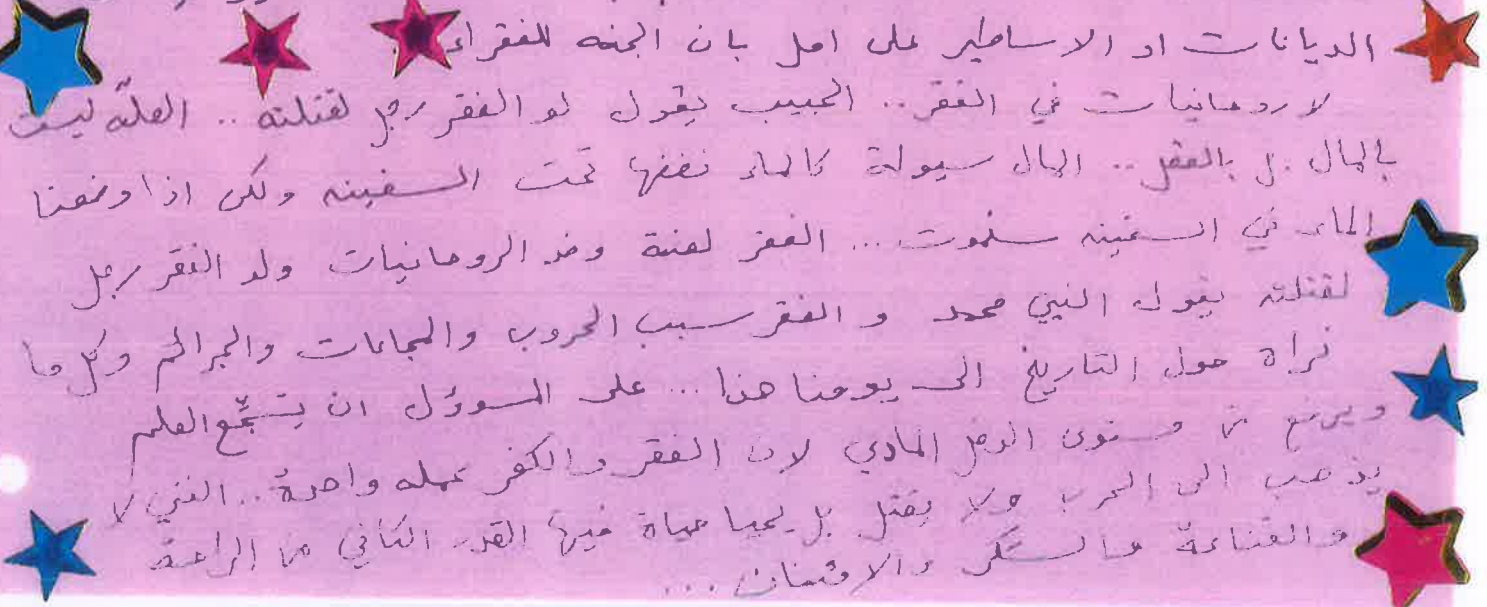 الديانات او الاساطير على امل بان الجنه للفقراء
لا روحانيات في الفقر .. الحبيب يقول لو الفقر رجل لقتلته .. العلّه ليست
بالمال بل بالعقل .. المال سيولة كالماء نضعها تحت السفينه ولكن اذا وضعنا
الماء في السفينه سنموت ... الفقر لعنة وضد الروحانيات ولو الفقر رجل
لقتلته يقول النبي محمد و الفقر سبب الحروب والمجاعات والجرائم وكل ما
نراه حول التاريخ الى يومنا هذا ... على المسوؤل ان يشجّع العلم
ويرفع من مستوى الدخل المادي لان الفقر والكفر عمله واحدة .. الغني لا
يذهب الى الحرب ولا يقتل بل يحيا حياة فيها القدر الكافي من الراحة
والقناعة والشكر والامتنان ...